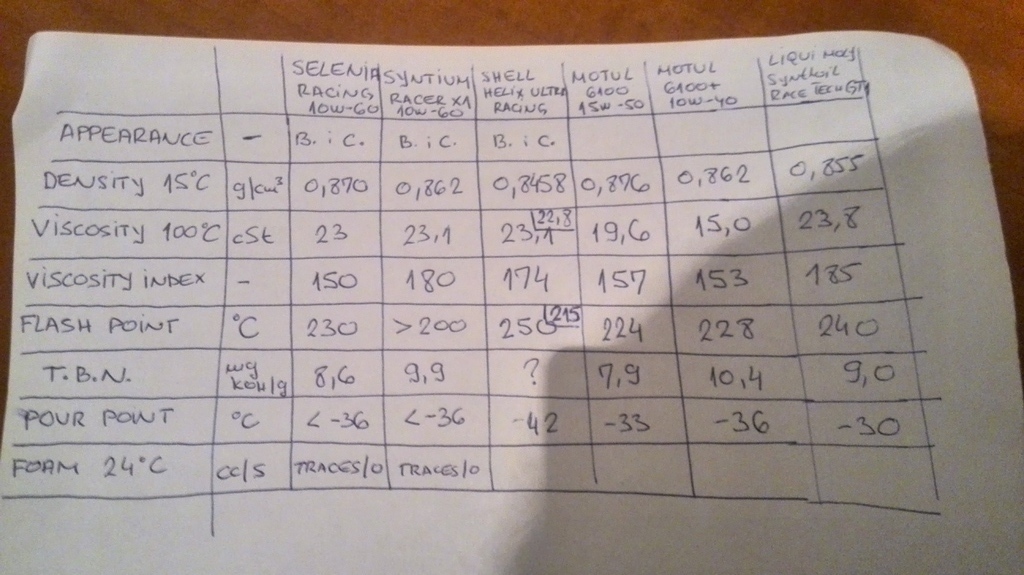 SELENIA RACING 10W-60 SYNTIUM RACER X1 10W-60 SHELL HELIX ULTRA RACING MOTUL 6100 15W-50 MOTUL 6100+ 10W-40 LIQUI MOLY Synthoil RACE TECH GT1
APPEARANCE - B. i C. B. i C. B. i C.
DENSITY 15°C g/cm³ 0,870 0,862 0,8458 0,876 0,862 0,855
VISCOSITY 100°C cSt 23 23,1 23,1 22,8 19,6 15,0 23,8
VISCOSITY INDEX - 150 180 174 157 153 185
FLASH POINT °C 230 >200 250 215 224 228 240
T.B.N. mg KOH/g 8,6 9,9 ? 7,9 10,4 9,0
POUR POINT °C <-36 <-36 -42 -33 -36 -30
FOAM 24°C cc/s TRACES/0 TRACES/0